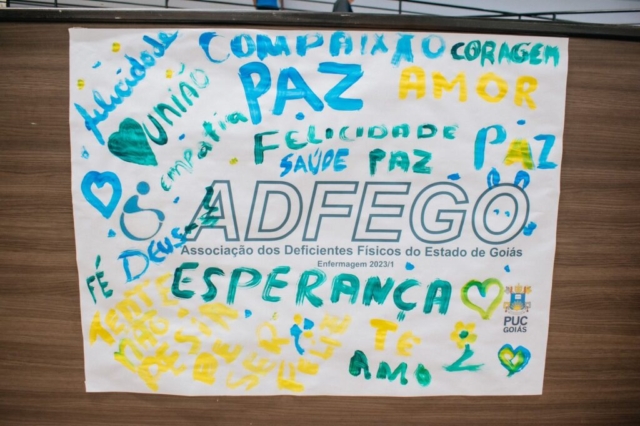 felicidade
COMPAIXÃO
CORAGEM
UNIÃO
PAZ
AMOR
empatia
FELICIDADE
PAZ
SAÚDE PAZ
ADFEGO
DEUS É
Associação dos Deficientes Físicos do Estado de Goiás
Enfermagem 2023/1
FÉ
ESPERANÇA
TENTE
NÃO
DESISTA
DE
SER
FELIZ
TE
AMO
PUC
GOIÁS